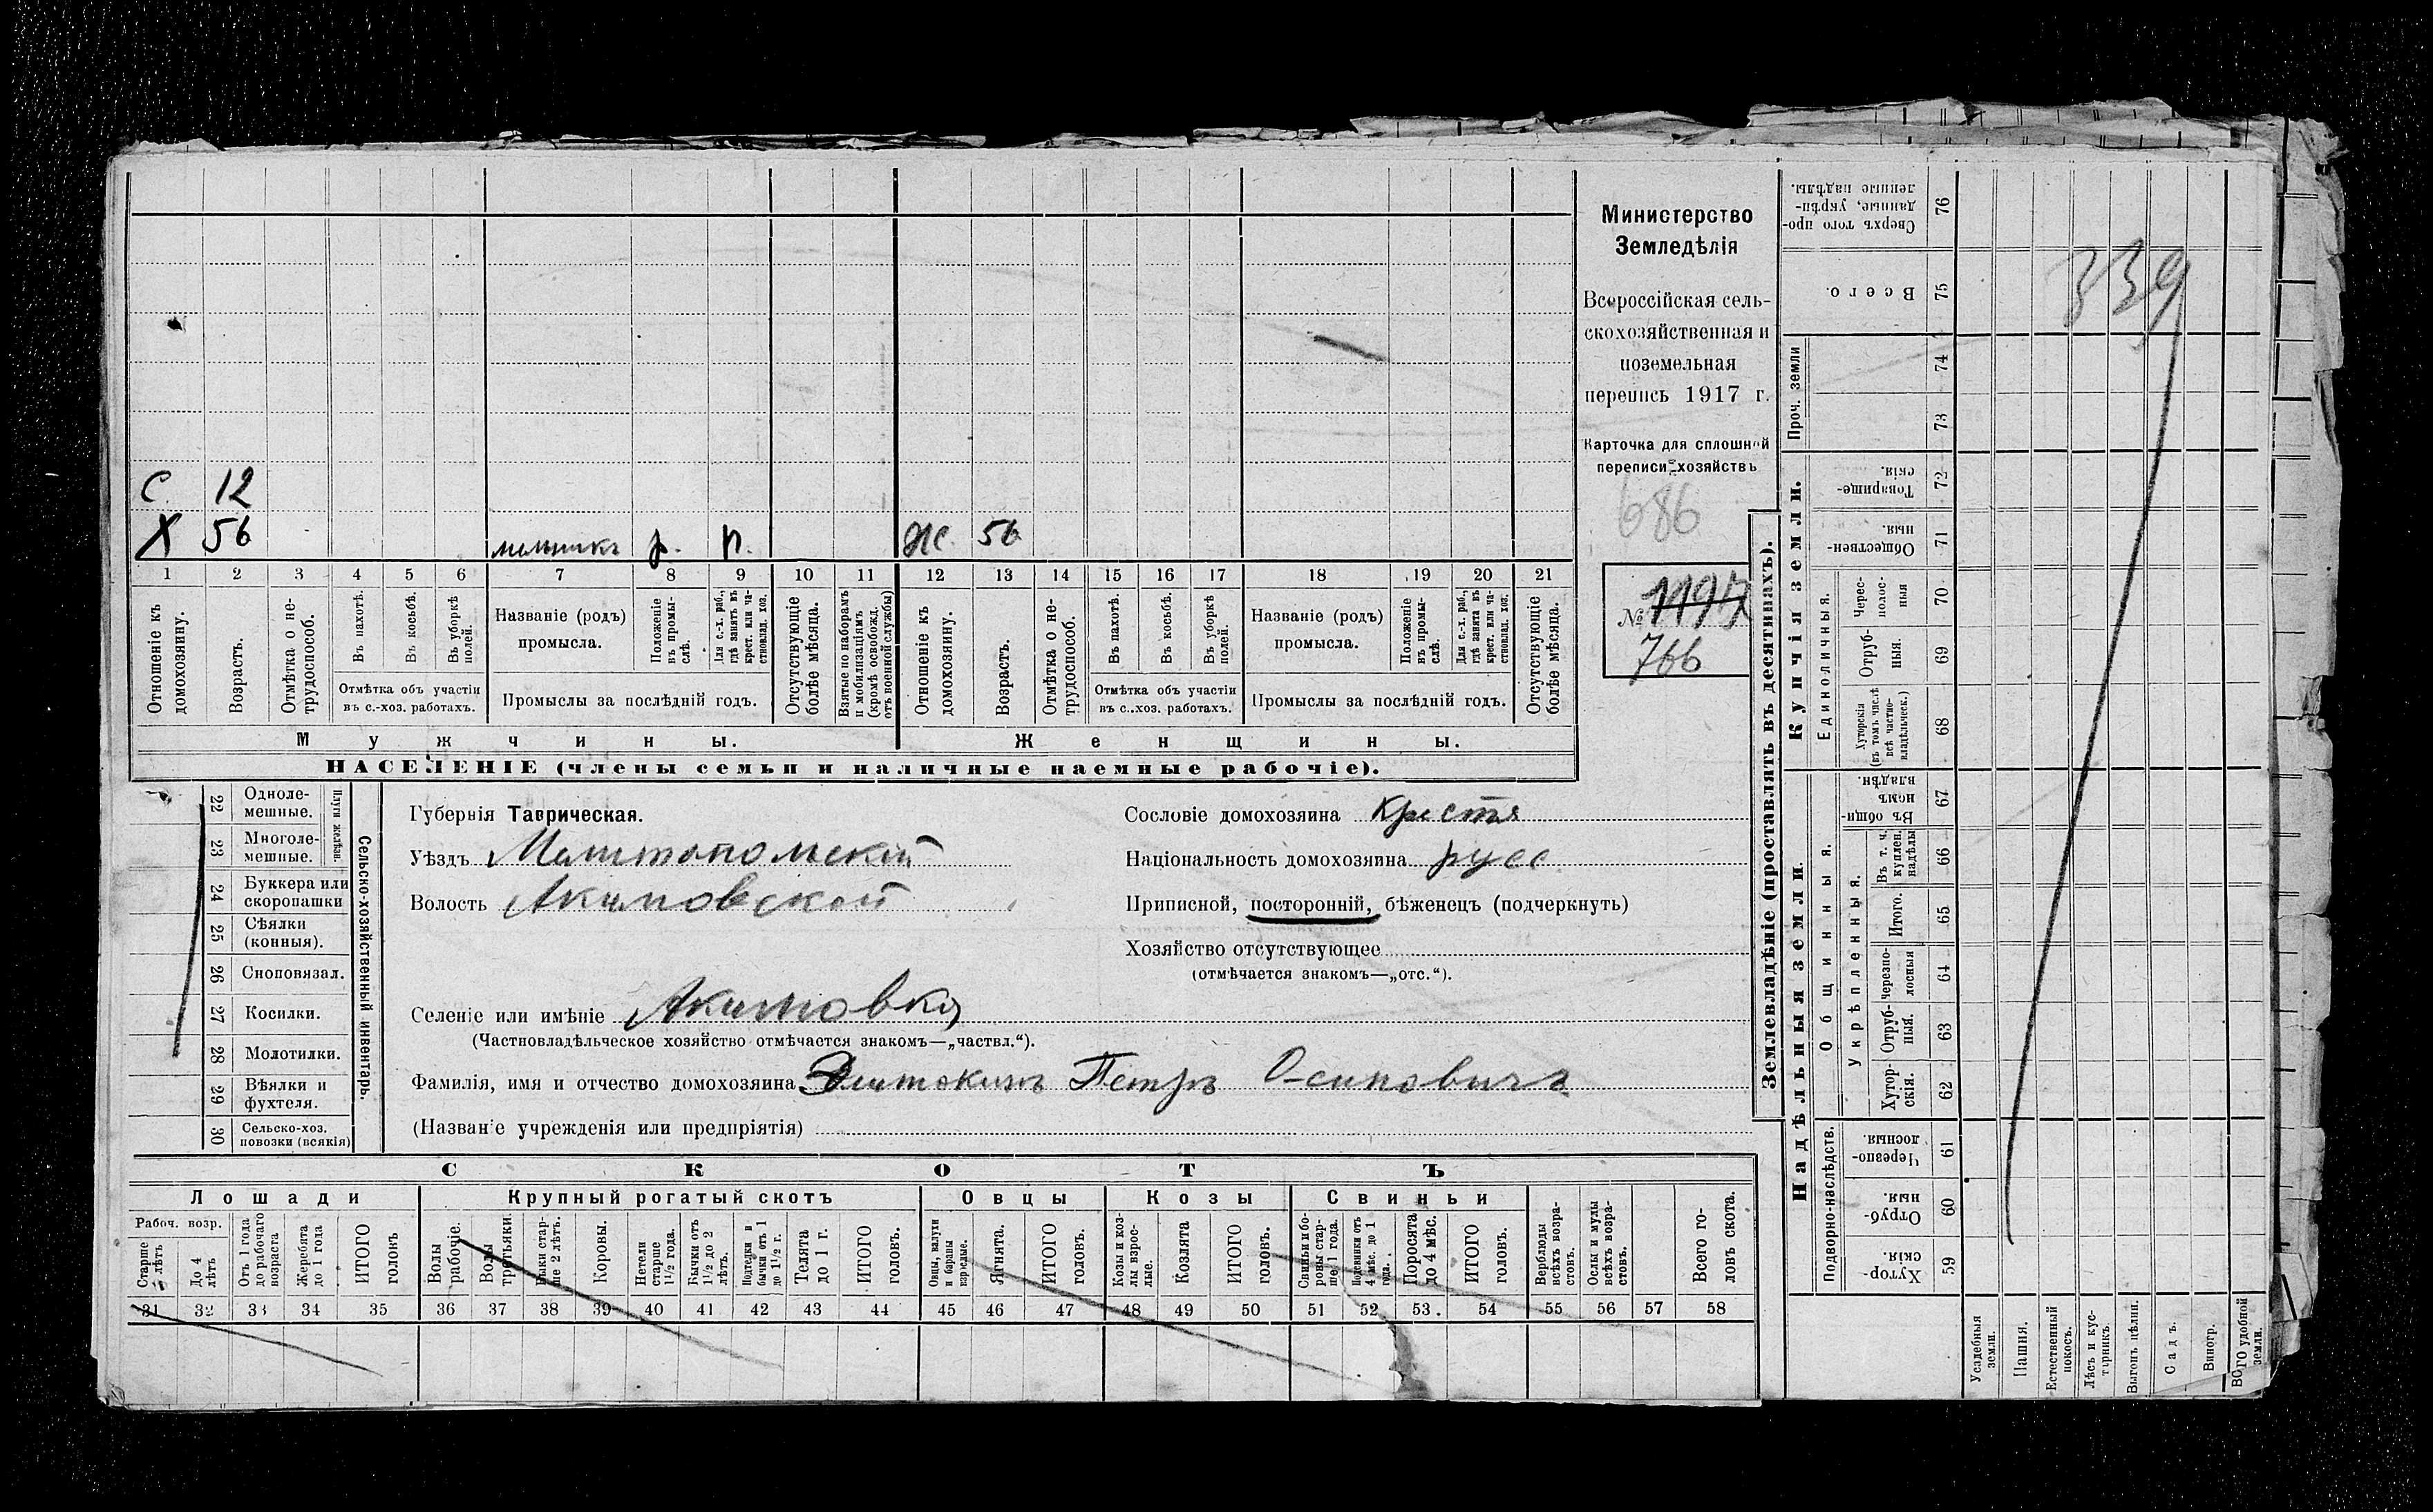 Министерство
Земледѣлія
Всероссійская сель-
скохозяйственная и
поземельная
перепись 1917 г.
Карточка для сплошной
переписи хозяйствъ
686
№ 1197
766
С. 12
Х 56 мельникъ р. п. Ж. 56
1 2 3 4 5 6 7 8 9 10 11 12 13 14 15 16 17 18 19 20 21
Отношеніе къ домохозяину.
Возрастъ.
Отмѣтка о не-трудоспособ.
Въ пахотѣ.
Въ косьбѣ.
Въ уборкѣ полей.
Отмѣтка объ участіи
въ с.-хоз. работахъ.
Названіе (родъ)
промысла.
Положеніе въ промы-слѣ.
Для с.-х. раб., гдѣ занятъ въ крест. или ча-стновлад. хоз.
Промыслы за послѣдній годъ.
Отсутствующіе болѣе мѣсяца.
Взятые по наборамъ и мобилизаціямъ (кромѣ освобожд. отъ военной службы)
Отношеніе къ домохозяину.
Возрастъ.
Отмѣтка о не-трудоспособ.
Въ пахотѣ.
Въ косьбѣ.
Въ уборкѣ полей.
Отмѣтка объ участіи
въ с.-хоз. работахъ.
Названіе (родъ)
промысла.
Положеніе въ промы-слѣ.
Для с.-х. раб., гдѣ занята въ крест. или ча-стновлад. хоз.
Промыслы за послѣдній годъ.
Отсутствующіе болѣе мѣсяца.
Мужчины.
Женщины.
НАСЕЛЕНІЕ (члены семьи и наличные наемные рабочіе).
22 Одноле-мешные.
23 Многоле-мешные.
Плуги желѣзн.
24 Буккера или скоропашки
25 Сѣялки (конныя).
26 Сноповязал.
27 Косилки.
28 Молотилки.
29 Вѣялки и фухтеля.
30 Сельско-хоз. повозки (всякія)
Сельско-хозяйственный инвентарь.
Губернія Таврическая.
Уѣздъ Мелитопольскій
Волость Акимовской
Сословіе домохозяина крестья
Національность домохозяина русс
Приписной, посторонній, бѣженецъ (подчеркнуть)
Хозяйство отсутствующее
(отмѣчается знакомъ—„отс.“).
Селеніе или имѣніе Акимовка
(Частновладѣльческое хозяйство отмѣчается знакомъ—„частвл.“).
Фамилія, имя и отчество домохозяина Петръ Осиповичъ
(Названіе учрежденія или предпріятія)
СКОТЪ
Лошади
Крупный рогатый скотъ
Овцы
Козы
Свиньи
Рабоч. возр.
Старше 4 лѣтъ
До 4 лѣтъ
Отъ 1 года до рабочаго возраста
Жеребята до 1 года
ИТОГО головъ
Волы рабочіе.
Волы третьяки.
Быки стар-ше 2 лѣтъ.
Коровы.
Нетели старше 1½ года.
Бычки отъ 1½ до 2 лѣтъ.
Подтелки и бычки отъ 1 до 1½ г.
Телята до 1 г.
ИТОГО головъ.
Овцы, валухи и бараны взрослые.
Ягнята.
ИТОГО головъ.
Козы и коз-лы взрос-лые.
Козлята
ИТОГО головъ.
Свиньи и бо-ровы стар-ше 1 года.
Подсвинки отъ 4 мѣс. до 1 года.
Поросята до 4 мѣс.
ИТОГО головъ.
Верблюды всѣхъ возра-стовъ.
Ослы и мулы всѣхъ возра-стовъ.
Всего го-ловъ скота.
31 32 33 34 35 36 37 38 39 40 41 42 43 44 45 46 47 48 49 50 51 52 53 54 55 56 57 58
Землевладѣніе (проставлять въ десятинахъ).
Купчія земли.
Надѣльныя земли.
Сверхъ того про-данные, укрѣп-ленные надѣлы. 76
Всего. 75
339
Проч. земли
74
73
Товарище-скія. 72
Обществен-ныя. 71
Единоличныя.
Черес-полос-ныя 70
Отруб-ныя. 69
Хуторскія (въ томъ числѣ всѣ частно-владѣльческ.) 68
Общинныя.
Въ общин-номъ владѣн. 67
Укрѣпленныя.
Въ т. ч. куплен. надѣлы 66
Итого. 65
Черезпо-лосныя 64
Отруб-ныя. 63
Хутор-скія. 62
Подворно-наслѣдств.
Черезпо-лосныя. 61
Отруб-ныя. 60
Хутор-скія. 59
Усадебныя земли.
Пашня.
Естественный покосъ.
Лѣсъ и кус-тарникъ.
Выгонъ цѣлин.
Садъ.
Виногр.
ВСЕГО удобной земли.